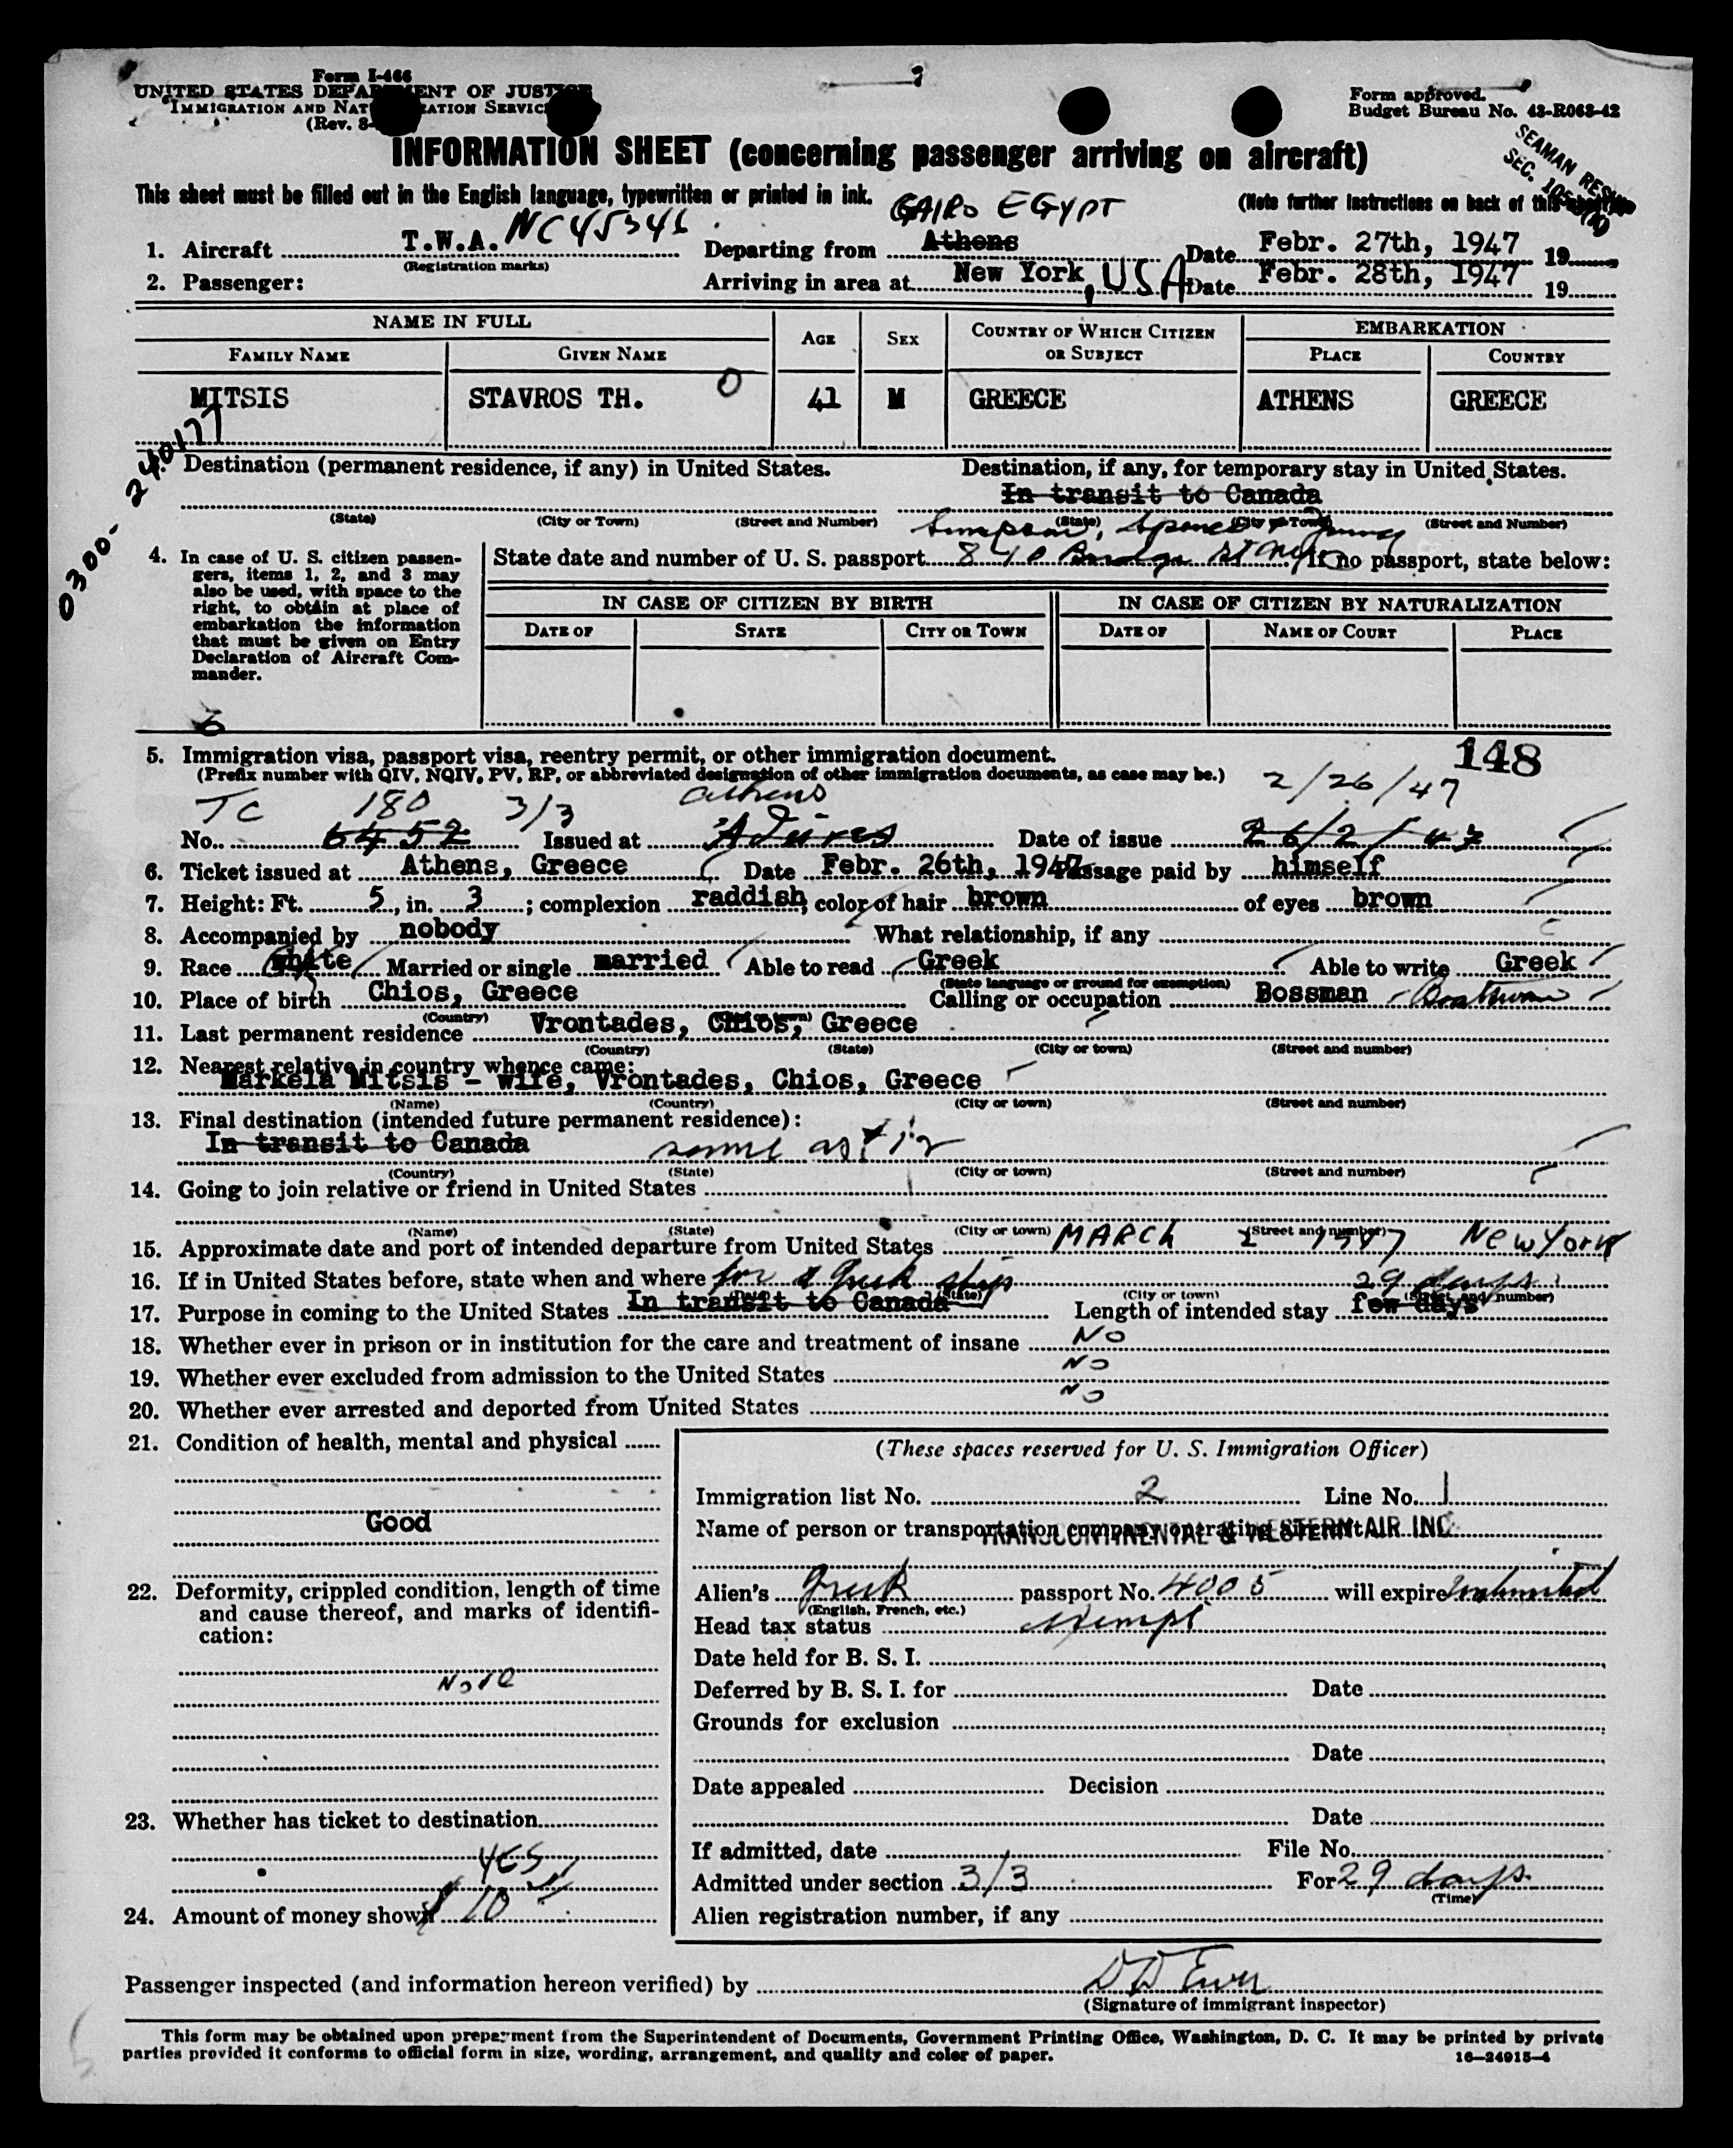 Form I-466
UNITED STATES DEPARTMENT OF JUSTICE
IMMIGRATION AND NATURALIZATION SERVICE
(Rev. 8-
Form approved.
Budget Bureau No. 43-R063-42
SEAMAN
SEC. 105
INFORMATION SHEET (concerning passenger arriving on aircraft)
This sheet must be filled out in the English language, typewritten or printed in ink.
(Note further instructions on back of this sheet)
CAIRO EGYPT
1. Aircraft T.W.A. NC45346 Departing from Athens Date Febr. 27th, 1947 19
(Registration marks)
2. Passenger: Arriving in area at New York, USA Date Febr. 28th, 1947 19
NAME IN FULL AGE SEX COUNTRY OF WHICH CITIZEN OR SUBJECT EMBARKATION
FAMILY NAME GIVEN NAME PLACE COUNTRY
MITSIS STAVROS TH. O 41 M GREECE ATHENS GREECE
0300-240177
Destination (permanent residence, if any) in United States. Destination, if any, for temporary stay in United States.
In transit to Canada
(State) (City or Town) (Street and Number) (State) (City or Town) (Street and Number)
Simpson, Spence & Young
4. In case of U. S. citizen passengers, items 1, 2, and 3 may also be used, with space to the right, to obtain at place of embarkation the information that must be given on Entry Declaration of Aircraft Commander.
State date and number of U. S. passport If no passport, state below:
IN CASE OF CITIZEN BY BIRTH IN CASE OF CITIZEN BY NATURALIZATION
DATE OF STATE CITY OR TOWN DATE OF NAME OF COURT PLACE
148
5. Immigration visa, passport visa, reentry permit, or other immigration document.
(Prefix number with QIV, NQIV, PV, RP, or abbreviated designation of other immigration documents, as case may be.)
TC 180 3/3 Athens 2/26/47
No. 6452 Issued at Date of issue 26/2/47
6. Ticket issued at Athens, Greece Date Febr. 26th, 1947 Passage paid by himself
7. Height: Ft. 5, in. 3; complexion raddish, color of hair brown of eyes brown
8. Accompanied by nobody What relationship, if any
9. Race white Married or single married Able to read Greek Able to write Greek
(State language or ground for exemption)
10. Place of birth Chios, Greece Calling or occupation Bossman Boatswain
(Country) (City or town)
11. Last permanent residence Vrontades, Chios, Greece
(Country) (State) (City or town) (Street and number)
12. Nearest relative in country whence came:
Markela Mitsis - wife, Vrontades, Chios, Greece
(Name) (Country) (City or town) (Street and number)
13. Final destination (intended future permanent residence):
In transit to Canada same as # 12
(Country) (State) (City or town) (Street and number)
14. Going to join relative or friend in United States
(Name) (State) (City or town) (Street and number)
15. Approximate date and port of intended departure from United States MARCH 1947 New York
16. If in United States before, state when and where
for a Greek ship 29 days
(State) (City or town) (Street and number)
17. Purpose in coming to the United States In transit to Canada Length of intended stay few days
18. Whether ever in prison or in institution for the care and treatment of insane No
19. Whether ever excluded from admission to the United States No
20. Whether ever arrested and deported from United States No
21. Condition of health, mental and physical
Good
22. Deformity, crippled condition, length of time and cause thereof, and marks of identification:
None
23. Whether has ticket to destination
YES
24. Amount of money shown $10
(These spaces reserved for U. S. Immigration Officer)
Immigration list No. 2 Line No. 1
Name of person or transportation company operating aircraft TRANSCONTINENTAL & WESTERN AIR INC
Alien's Greek passport No. 4005 will expire Unlimited
(English, French, etc.)
Head tax status exempt
Date held for B. S. I.
Deferred by B. S. I. for Date
Grounds for exclusion
Date
Date appealed Decision
Date
If admitted, date File No.
Admitted under section 3/3 For 29 days
(Time)
Alien registration number, if any
Passenger inspected (and information hereon verified) by
(Signature of immigrant inspector)
This form may be obtained upon prepayment from the Superintendent of Documents, Government Printing Office, Washington, D. C. It may be printed by private
parties provided it conforms to official form in size, wording, arrangement, and quality and color of paper. 16-24915-4